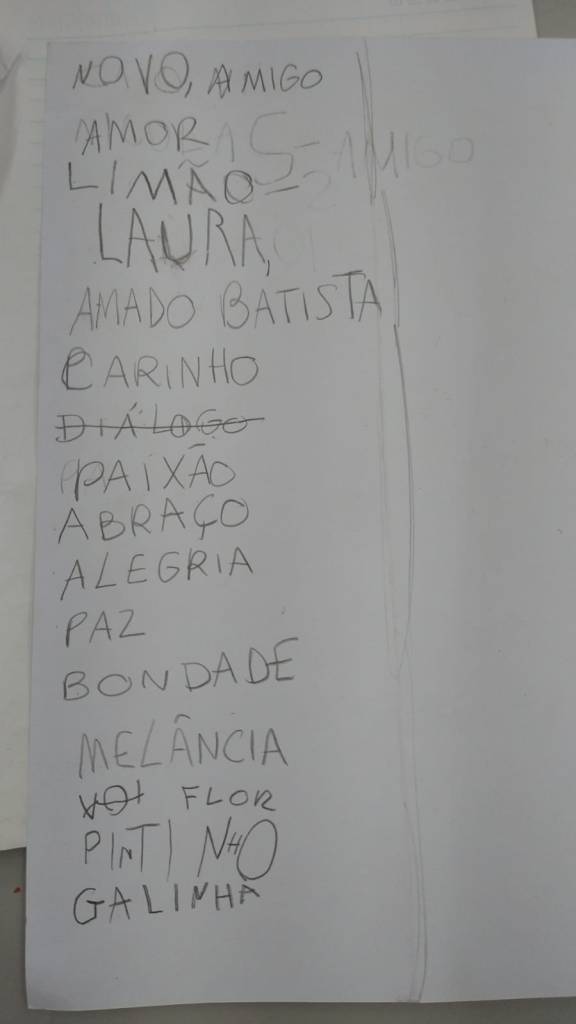 NOVO, AMIGO
AMOR
LIMÃO
LAURA,
AMADO BATISTA
CARINHO
DIÁLOGO
PAIXÃO
ABRAÇO
ALEGRIA
PAZ
BONDADE
MELÂNCIA
FLOR
PINTINHO
GALINHA